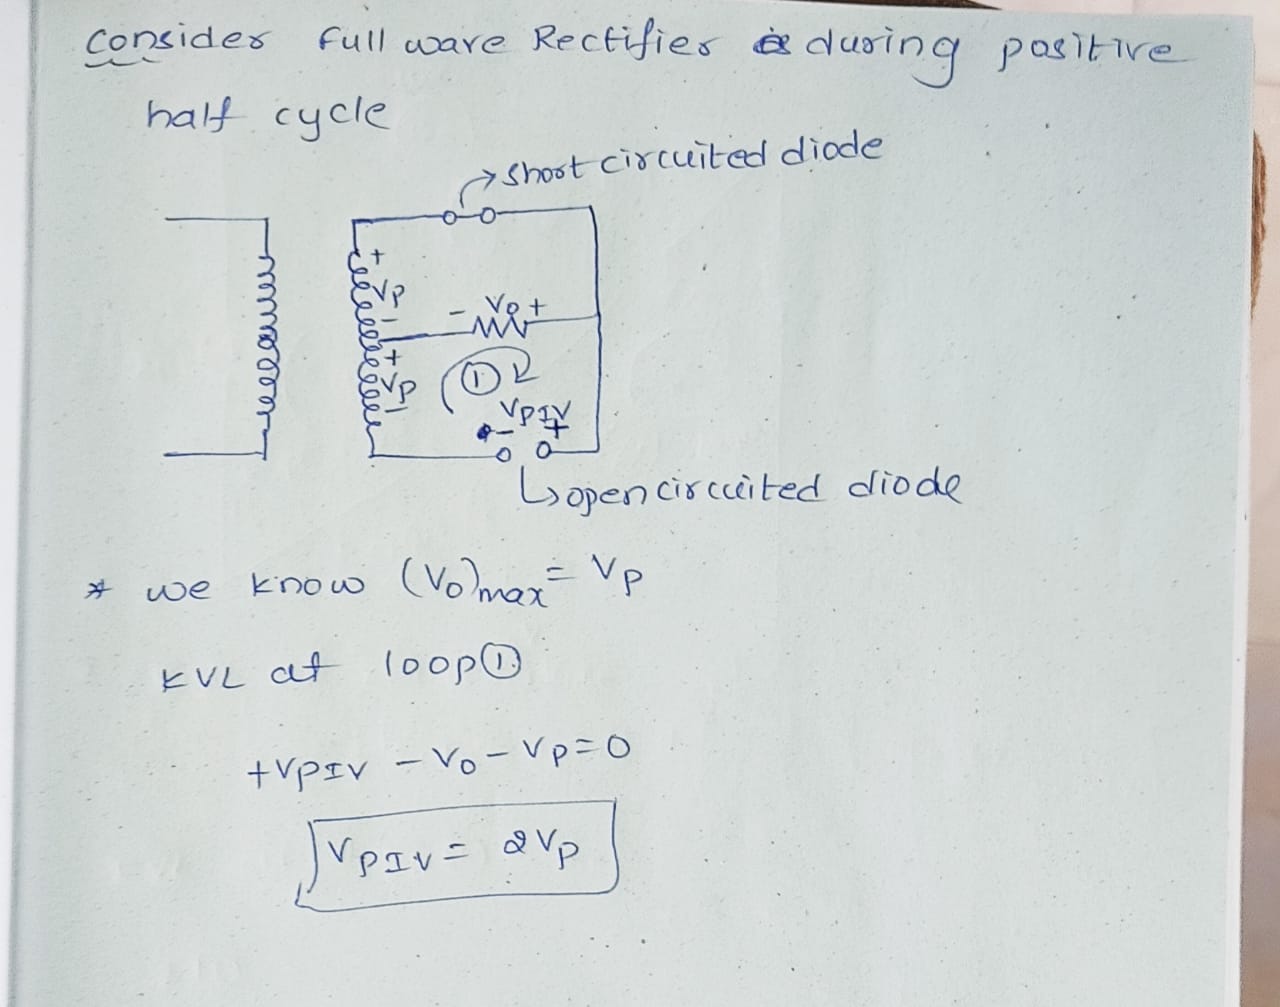 Consider full wave Rectifier during positive
half cycle
→ short circuited diode
+
Vp
-
- Vo +
+
Vp
-
①
VPIV
- +
↳ open circuited diode
* we know (Vo)max = Vp
KVL at loop ①
+VPIV - Vo - Vp = 0
VPIV = 2Vp